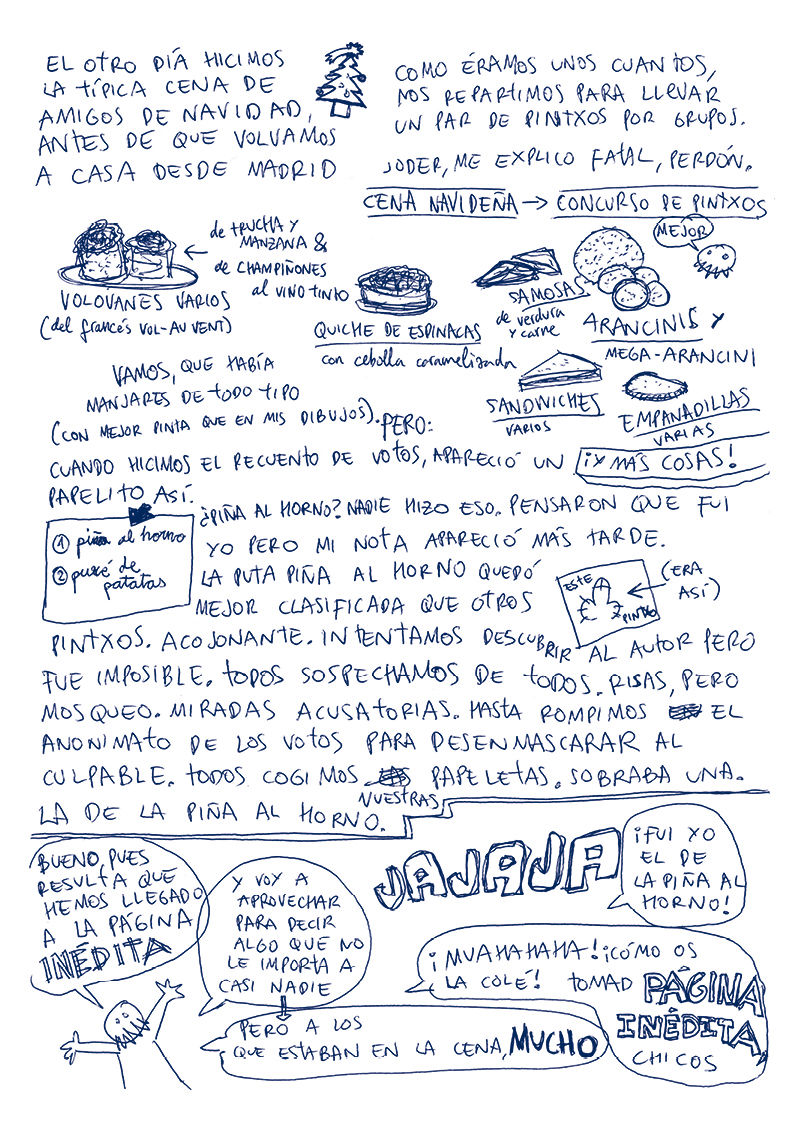 EL OTRO DÍA HICIMOS
LA TÍPICA CENA DE
AMIGOS DE NAVIDAD,
ANTES DE QUE VOLVAMOS
A CASA DESDE MADRID
COMO ÉRAMOS UNOS CUANTOS,
NOS REPARTIMOS PARA LLEVAR
UN PAR DE PINTXOS POR GRUPOS.
JODER, ME EXPLICO FATAL, PERDÓN.
CENA NAVIDEÑA → CONCURSO DE PINTXOS
de TRUCHA Y
MANZANA &
de CHAMPIÑONES
al VINO TINTO
VOLOVANES VARIOS
(del francés VOL-AU VENT)
QUICHE DE ESPINACAS
con cebolla caramelizada
SAMOSAS
de verdura
y carne
MEJOR
ARANCINIS Y
MEGA-ARANCINI
SANDWICHES
VARIOS
EMPANADILLAS
VARIAS
¡Y MÁS COSAS!
VAMOS, QUE HABÍA
MANJARES DE TODO TIPO
(CON MEJOR PINTA QUE EN MIS DIBUJOS). PERO:
CUANDO HICIMOS EL RECUENTO DE VOTOS, APARECIÓ UN
PAPELITO ASÍ.
① piña al horno
② puré de
patatas
¿PIÑA AL HORNO? NADIE HIZO ESO. PENSARON QUE FUI
YO PERO MI NOTA APARECIÓ MÁS TARDE.
LA PUTA PIÑA AL HORNO QUEDÓ
MEJOR CLASIFICADA QUE OTROS
ESTE
PINTXO
(ERA
ASÍ)
PINTXOS. ACOJONANTE. INTENTAMOS DESCUBRIR AL AUTOR PERO
FUE IMPOSIBLE. TODOS SOSPECHAMOS DE TODOS. RISAS, PERO
MOSQUEO. MIRADAS ACUSATORIAS. HASTA ROMPIMOS EL
ANONIMATO DE LOS VOTOS PARA DESENMASCARAR AL
CULPABLE. TODOS COGIMOS NUESTRAS PAPELETAS. SOBRABA UNA.
LA DE LA PIÑA AL HORNO.
BUENO, PUES
RESULTA QUE
HEMOS LLEGADO
A LA PÁGINA
INÉDITA
Y VOY A
APROVECHAR
PARA DECIR
ALGO QUE NO
LE IMPORTA A
CASI NADIE
PERO A LOS
QUE ESTABAN EN LA CENA, MUCHO
JAJAJA
¡FUI YO
EL DE
LA PIÑA AL
HORNO!
¡MUAHAHAHA! ¡CÓMO OS
LA COLÉ! TOMAD PÁGINA
INÉDITA
CHICOS